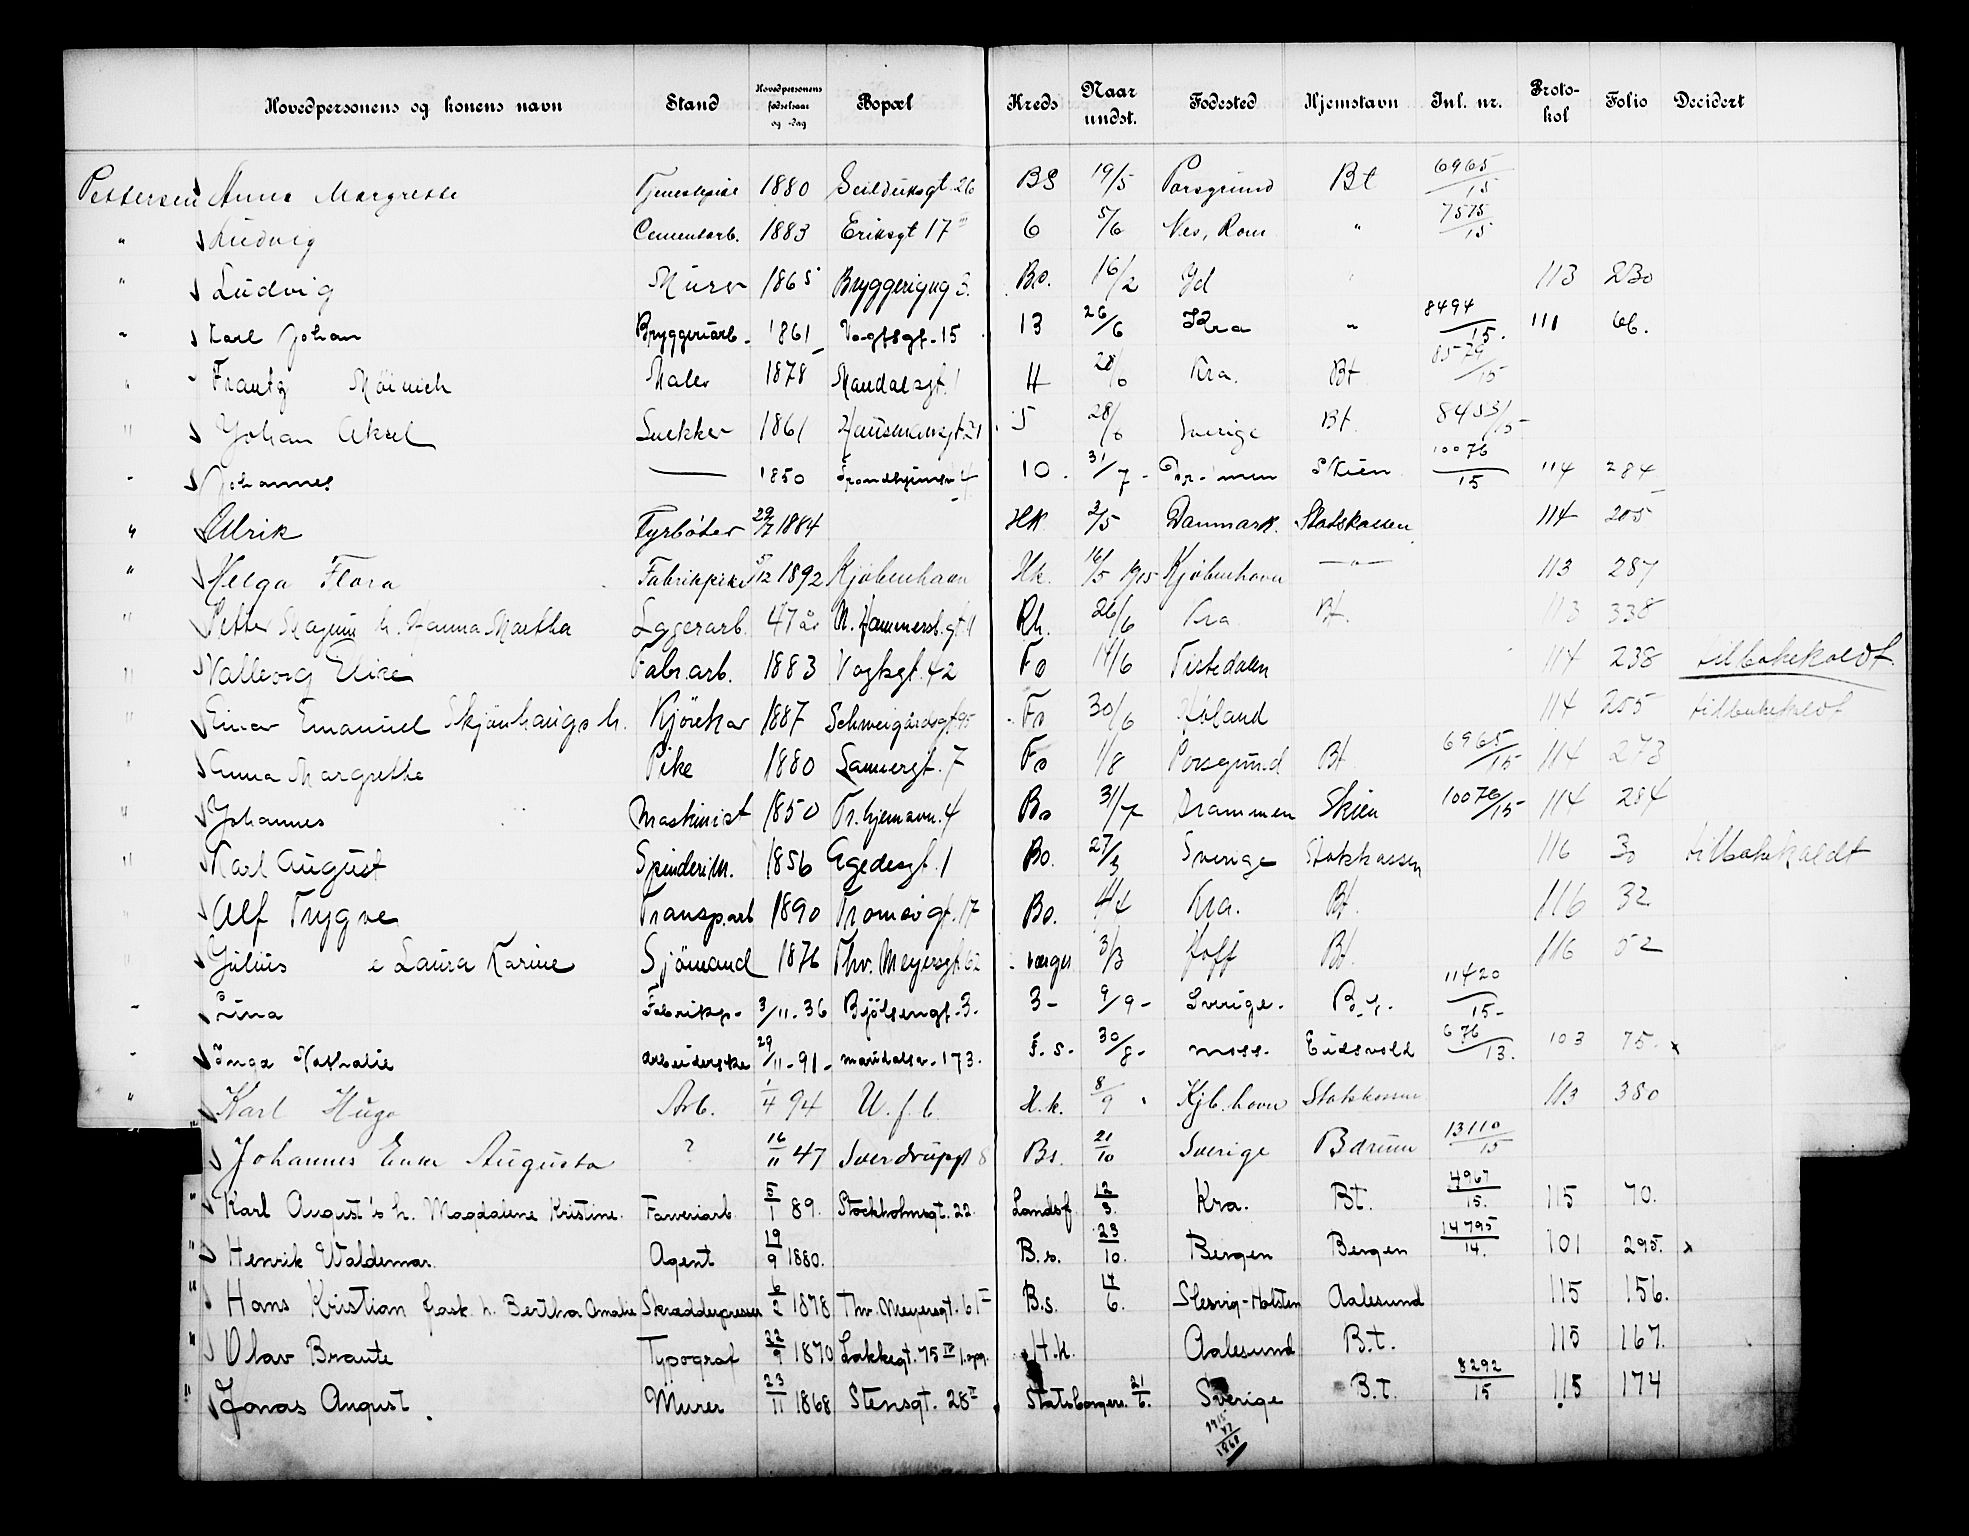 Hovedpersonens og konens navn Stand Hovedpersonens fødselsaar og -dag Bopæl Kreds Naar undst. Fødested Hjemstavn Inl. nr. Protokol Folio Decidert
Pettersen Anna Margrethe Tjenestepike 1880 Seilduksgt. 26 BS 19/5 Porsgrund Bt 6965/15
" Ludvig Cementarb. 1883 Eriksgt 17 III 6 5/6 Nes, Rom " 7575/15
" Ludvig Murer 1865 Bryggerigg 3. Bo. 16/2 Gd 113 230
" Karl Johan Bryggeriarb. 1861 Vogtsgt. 15 13 26/6 Kra " 8494/15. 111 66.
" Frantz Møinich Maler 1878 Mandalsgt. 1 4 28/6 Kra. Bt. 8579/15
" Johan Aksel Snekker 1861 Hausmannsgt 21 5 28/6 Sverige Bt. 8453/15
" Johannes — 1850 Trondhjemsv. 4 10. 31/7 Skien 10076/15 114 284
" Ulrik Fyrbøter 29/7 1884 HK. 2/5 Danmark. Statskassen. 114 205
" Helga Flora Fabrikpike 5/12 1892 Kjøbenhavn Hk. 16/5 1915 Kjøbenhavn —"— 113 287
" Petter Magnus h. Hanna Martha Lagerarb. 47 år N. Hammersb.gt. 1 Rh. 26/6 Kra. Bt. 113 338
" Valborg Elise Fabr.arb. 1883 Vogtsgt. 42 Fo 14/6 Tistedalen 114 238 tilbakekaldt.
" Einar Emanuel Skjønhaugs h. Kjørekar 1887 Schweigårdsgt 95 Fo 30/6 Høland 114 255 tilbakekaldt
" Anna Margrethe Pike 1880 Sannergt. 7 Fo 1/8 Porsgrund Bt. 6965/15 114 273
" Johannes Maskinist 1850 Tr.hjemsvn. 4 Bo 31/7 Drammen Skien 10076/15 114 284
" Karl August Spinderim. 1856 Egedesgt. 1 Bo. 27/3 Sverige Statskassen 116 30 tilbakekaldt
" Alf Trygve Transp.arb 1890 Tromsøgt. 17 Bo. 4/4 Kra. Bt. 116 32
" Julius e Laura Karine Sjømand 1876 Thv. Meyersgt. 62 værges 3/3 Hoff Bt. 116 52
" Lina Fabrikp. 3/11-36 Bjølsengt. 3. 3- 9/9- Sverige. B.t. 11420/15-
" Inga Nathalie Arbeiderske 29/11-91- Maridalsv. 173. F. s. 30/8- Moss. Eidsvold 676/13. 103 75. x
" Karl Hugo Arb. 1/4 94 U. f. b. H.k. 8/9 Kjb.havn Statskassen 113 380
" Johannes Enke Augusta ? 16/11 47 Sverdrupsgt 8 Bs. 21/10 Sverige Bærum 13110/15
" Karl August's h. Magdalene Kristine. Farveriarb. 5/1 89. Stockholmsgt. 22. Landsf. 12/3. Kra. Bt. 4967/15. 115 70.
" Henrik Waldemar. Agent 19/9 1880. B.s. 23/10. Bergen Bergen 14795/14. 101 295. x
" Hans Kristian frask. h. Bertha Amalie Skrædderpresser 6/2 1878 Thv. Meyersgt. 61 II B.s. 14/6. Slesvig-Holsten Aalesund 115 156.
" Olav Braute Typograf 22/9 1870 Lakkegt. 75 IV 1.opg. H.k. Aalesund B.t. 115 167.
" Jonas August. Murer 23/11 1868 Stensgt. 28 II Statsborgers. 21/6. Sverige B.T. 8292/15 115 174
1915
47
1868